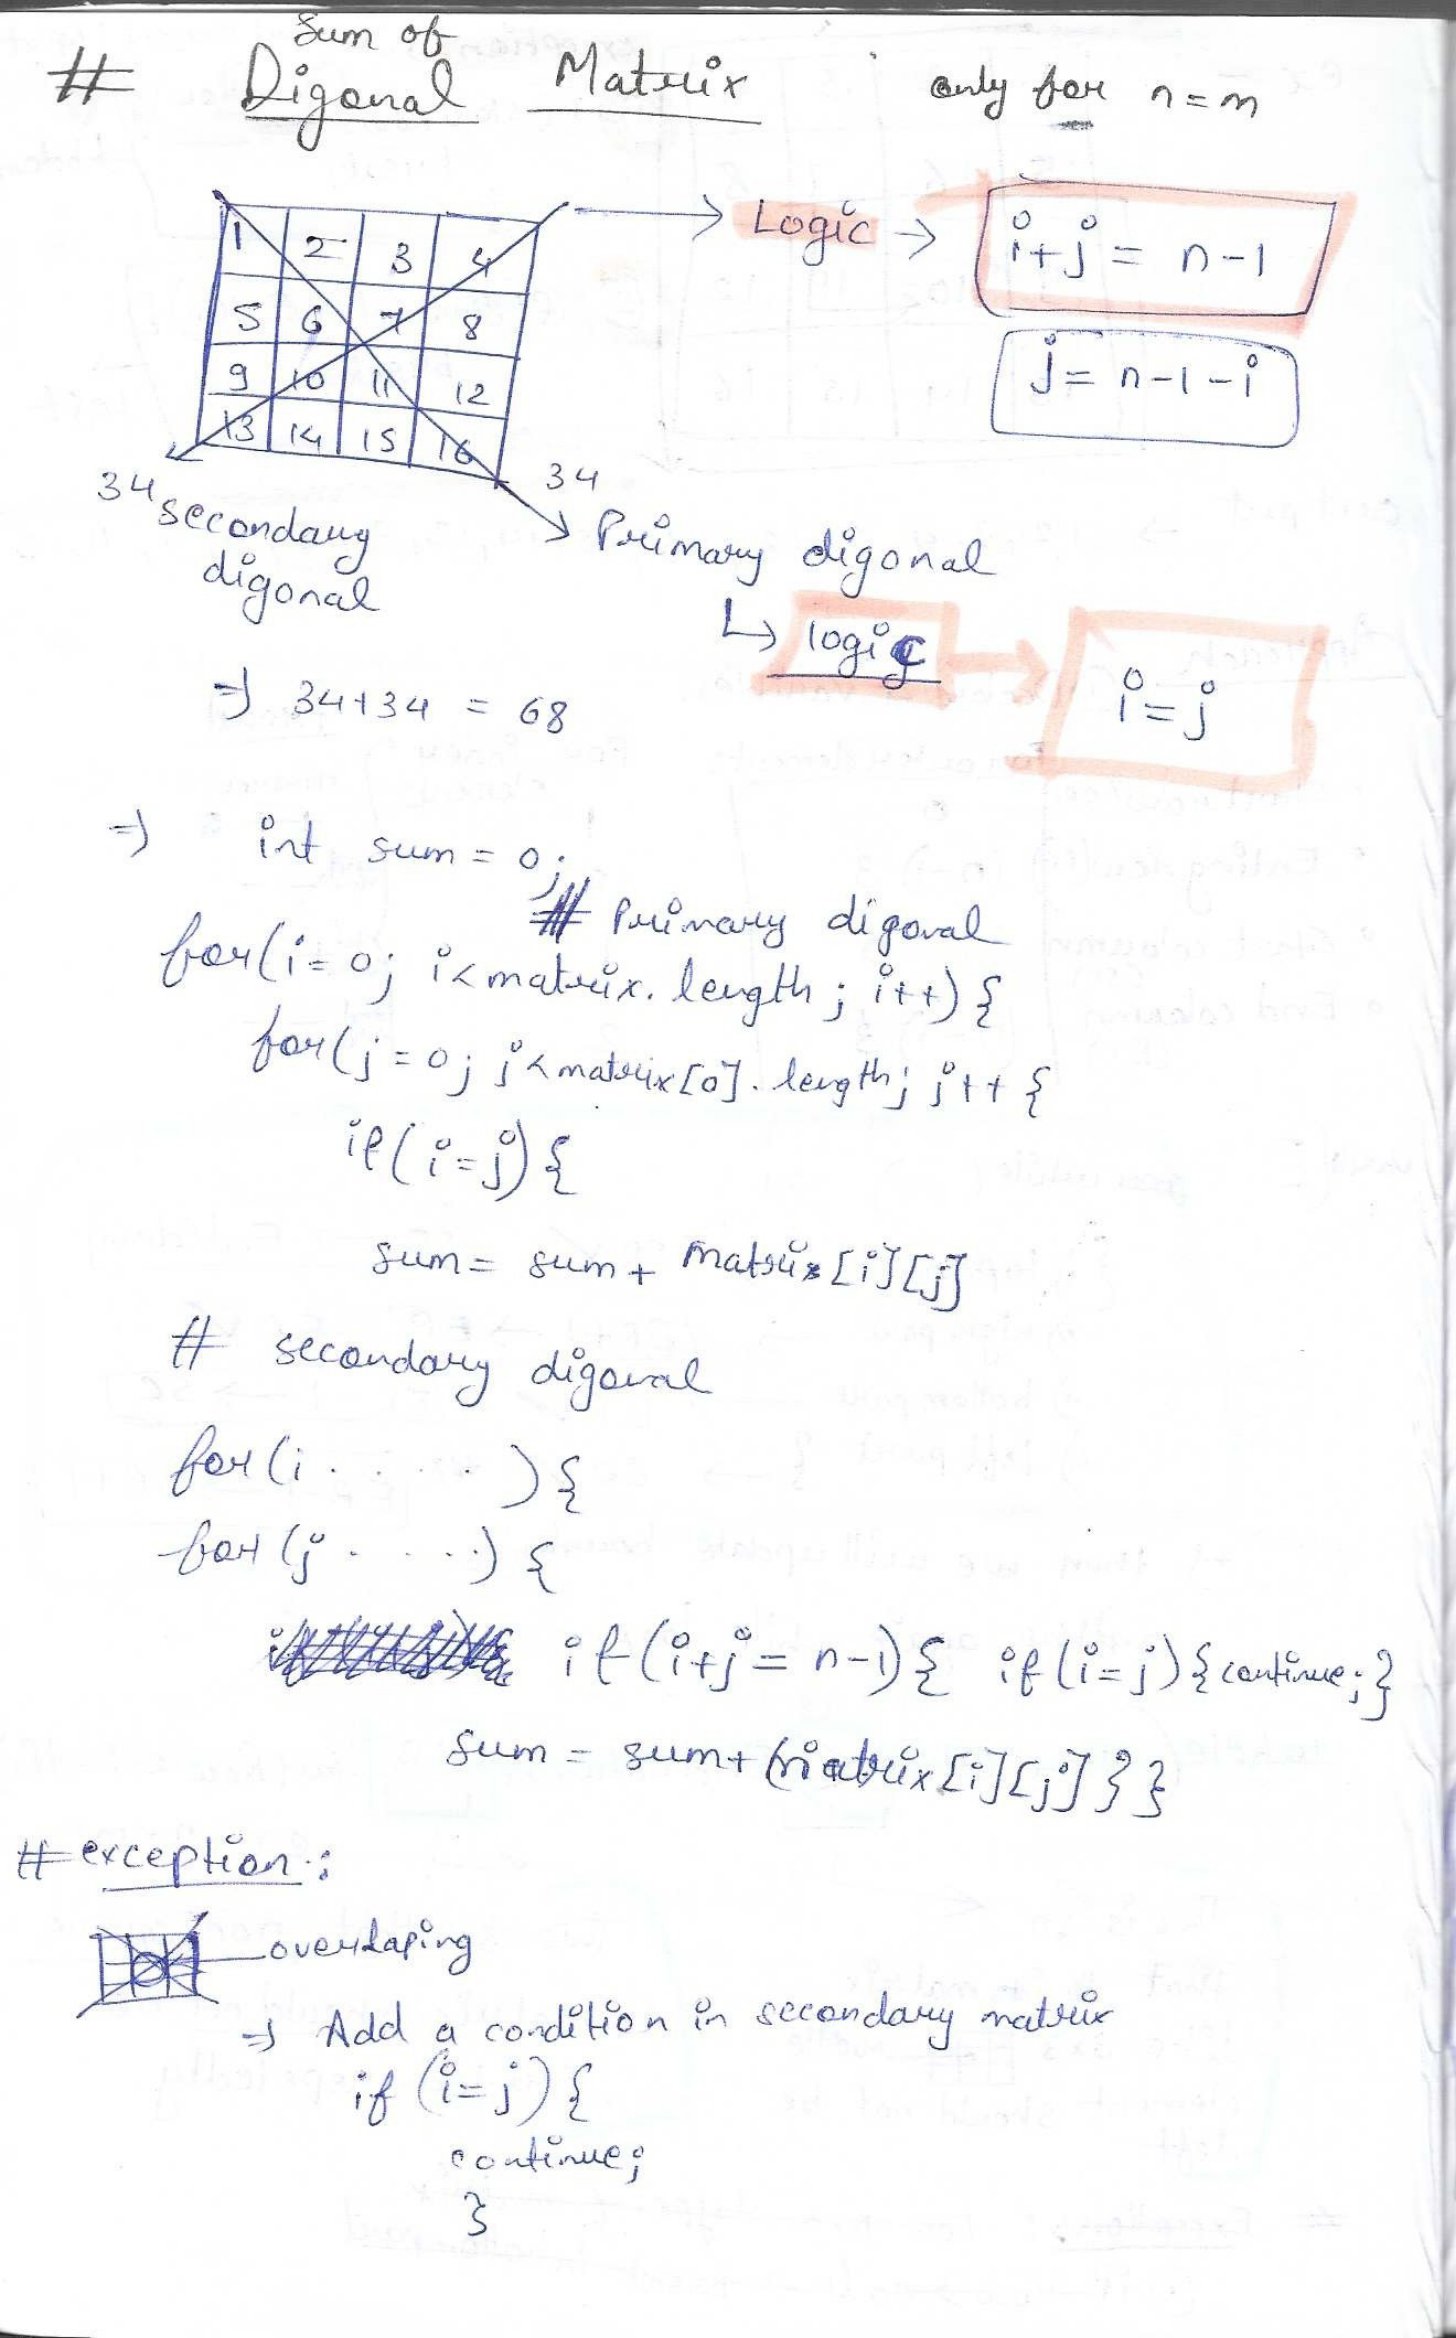 # Sum of Digonal Matrix only for n=m
1 2 3 4
5 6 7 8
9 10 11 12
13 14 15 16
Logic → i+j = n-1
j = n-1-i
34 secondary digonal
34 Primary digonal
↳ logic → i=j
=> 34+34 = 68
=> int sum = 0;
# Primary digonal
for(i=0; i<matrix.length; i++){
for(j=0; j<matrix[0].length; j++{
if(i=j){
sum = sum + matrix[i][j]
# secondary digonal
for(i . . . . ){
for(j . . . . ){
if(i+j = n-1){ if(i=j){continue;}
sum = sum + matrix[i][j] } }
# exception :
overlaping
=> Add a condition in secondary matrix
if (i=j){
continue;
}